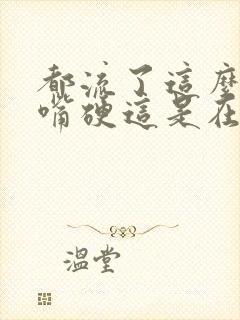 都流了這麼
嘴硬這是在
溫堂